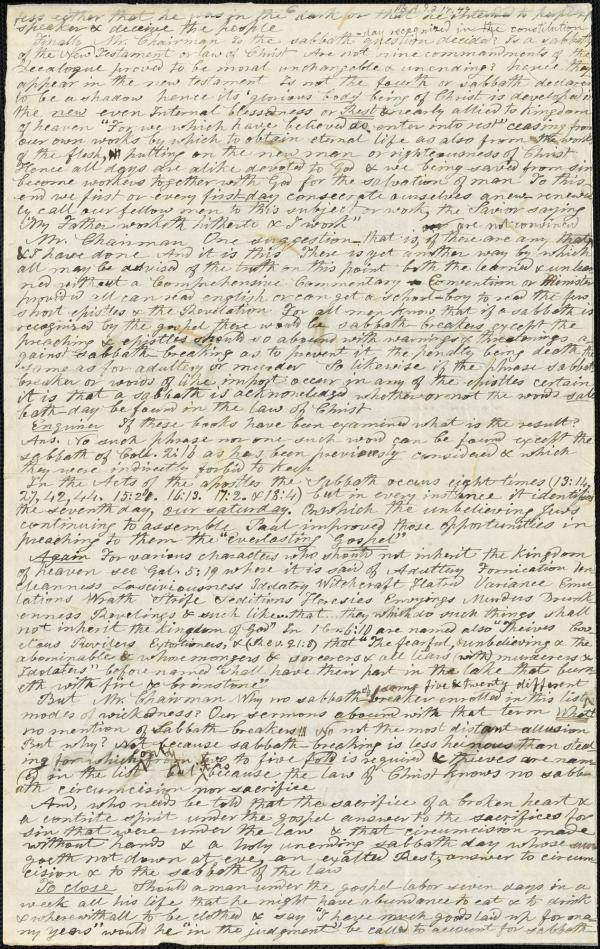 speaker & deceive the people
Finally Mr. Chairman Is the sabbath question decided? Is a sabbath -day recognized in the constitution
of the New Testament or law of Christ Are not nine commandments of the
Decalogue proved to be moral unchangable & unending? hence they
appear in the new testament Is not the fourth or sabbath declared
to be a shadow hence its glorious body being of Christ is developed in
the new even Internal blessedness or Rest & nearly allied to kingdom
of heaven "For we which have believed do enter into rest" ceasing from
our own works by which to obtain eternal life as also from the works
of the flesh, putting on the new man or righteousness of Christ
Hence all days are alike devoted to God & we being saved from sin
become workers together with God for the salvation of man To this
end we first or every first-day consecrate ourselves anew & renewed
ly call our fellow men to this subject or work, the Savior saying
"My Father worketh hitherto & I work"
Mr. Chairman One suggestion that is, if there are any that are not convinced
& I have done And it is this There is yet another way by which
all may be advised of the truth on this point both the learned & unlear
ned without a Comprehensive Commentary Convention or Minister
provided all can read english or can get a school-boy to read the few
short epistles & the Revelation For all men know that if a sabbath is
recognized by the gospel there would be sabbath-breakers except the
preaching & epistles should so abound with warnings & threatenings a
gainst sabbath-breaking as to prevent it the penalty being death the
same as for adultery or murder So likewise if the phrase sabbath
breaker or words of like import occur in any of the epistles certain
it is that a sabbath is acknowledged whether or not the words sab
bath-day be found in the law of Christ
Enquirer If these books have been examined what is the result?
Ans. No such phrase nor one such word can be found except the
sabbath of Colo. 2:16 as has been previously considered & which
they were indirectly forbid to keep
In the Acts of the apostles the Sabbath occurs eight times (13:14,
27, 42, 44. 15:21. 16:13. 17:2. & 18:4) but in every instance it identifies
the seventh day, our saturday. On which the unbelieving Jews
continuing to assemble Paul improved those opportunities in
preaching to them the "Everlasting Gospel"
Again For various characters who should not inherit the kingdom
of heaven see Gal. 5:19 where it is said of Adultery Fornication Un
cleanness Lasciviousness Idolatry Witchcraft Hatred Variance Emu
lations Wrath Strife Seditions Heresies Envyings Murders Drunk
enness Revelings & such like that they which do such things shall
not inherit the kingdom of God" In 1 Cor. 6:10 are named also "Theives Cov
etous Revilers Extortioners, & (Rev. 21:8) that "The fearful, & unbelieving & the
abominable & whoremongers & sorcerers & all liars (with) murderers &
Idolaters" before named "shall have their part in the lake that burn
eth with fire & brimstone"
But Mr. Chairman Why no sabbath breaker enrolled in this list of some five & twenty different
modes of wickedness? Our sermons abound with that term What
no mention of Sabbath breakers!!! No not the most distant allusion
But why? Not because sabbath-breaking is less heinous than steal
ing for which only from two to five fold is required & theives are nam
ed in the list but because the law of Christ knows no sabb
ath circumcision nor sacrifice
And, who needs be told that the sacrifice of a broken heart &
a contrite spirit under the gospel answer to the sacrifices for
sin that were under the law & that circumcision made
without hands & a holy unending sabbath day whose sun
goeth not down at eve, an exalted Rest, answer to circum
cision & to the sabbath of the law
To close Should a man under the gospel labor seven days in a
week all his life that he might have abundance to eat & to drink
& wherewithall to be clothed & say "I have much goods laid up for ma
ny years" would he "in the judgment" be called to account for sabbath